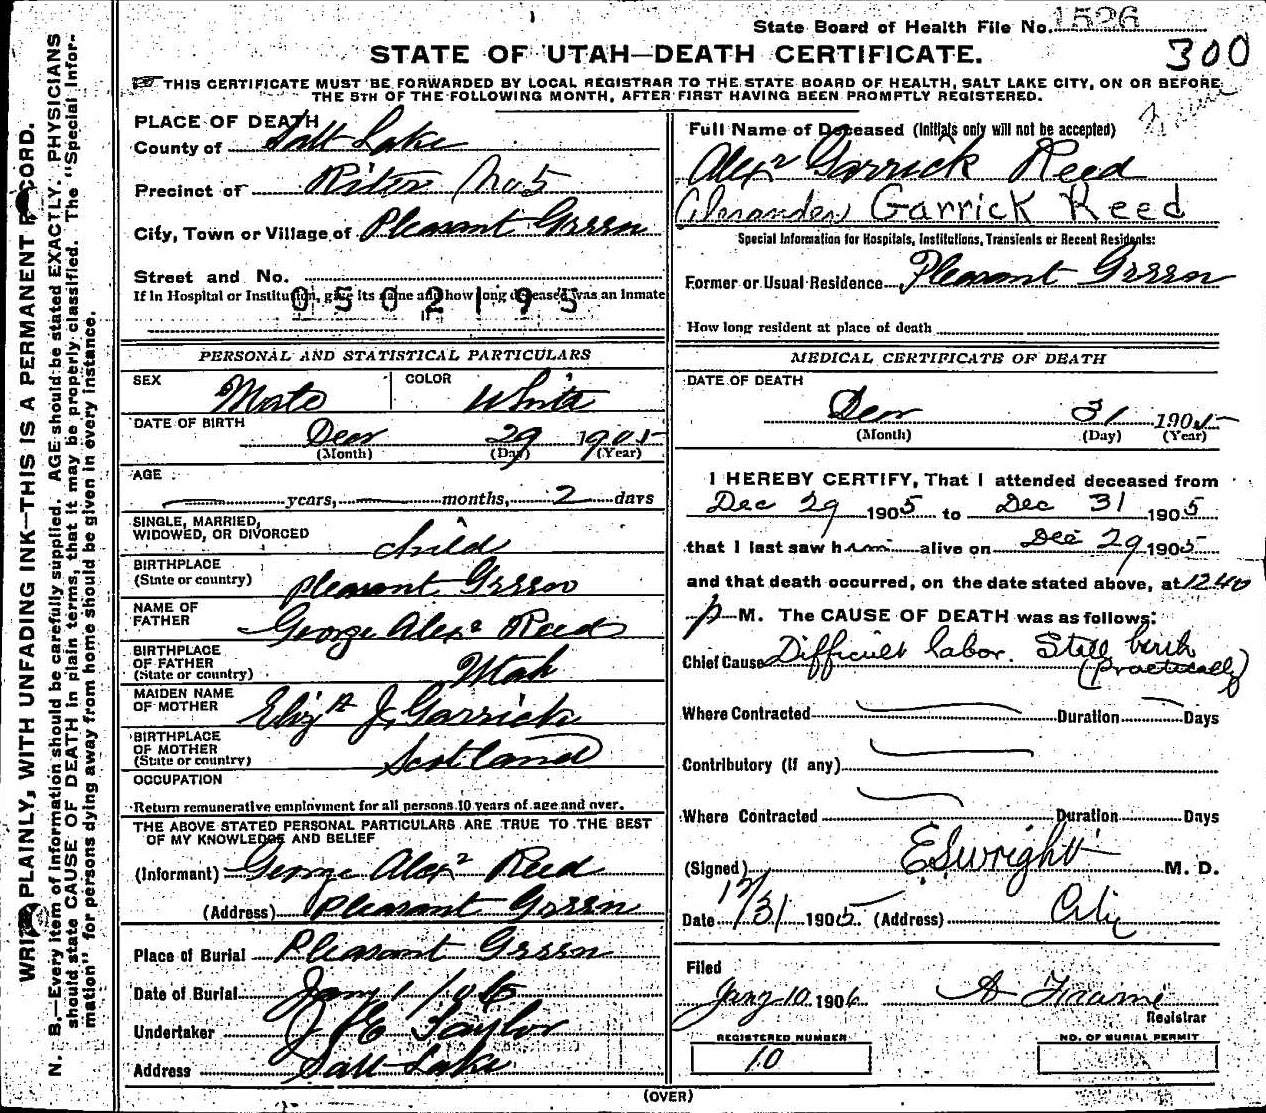 State Board of Health File No. 1526
300
STATE OF UTAH—DEATH CERTIFICATE.
THIS CERTIFICATE MUST BE FORWARDED BY LOCAL REGISTRAR TO THE STATE BOARD OF HEALTH, SALT LAKE CITY, ON OR BEFORE
THE 5TH OF THE FOLLOWING MONTH, AFTER FIRST HAVING BEEN PROMPTLY REGISTERED.
WRITE PLAINLY, WITH UNFADING INK—THIS IS A PERMANENT RECORD.
N. B.—Every item of information should be carefully supplied. AGE should be stated EXACTLY. PHYSICIANS
should state CAUSE OF DEATH in plain terms, that it may be properly classified. The "Special Infor-
mation" for persons dying away from home should be given in every instance.
PLACE OF DEATH
County of Salt Lake
Precinct of Riter No 5
City, Town or Village of Pleasant Green
Street and No.
If in Hospital or Institution, give its name and how long deceased was an inmate
0502195
PERSONAL AND STATISTICAL PARTICULARS
SEX Male COLOR White
DATE OF BIRTH
Decr 29 1905
(Month) (Day) (Year)
AGE
years, months, 2 days
SINGLE, MARRIED,
WIDOWED, OR DIVORCED child
BIRTHPLACE
(State or country) Pleasant Green
NAME OF
FATHER George Alexr Reed
BIRTHPLACE
OF FATHER
(State or country) Utah
MAIDEN NAME
OF MOTHER Elizth J Garrick
BIRTHPLACE
OF MOTHER
(State or country) Scotland
OCCUPATION
Return remunerative employment for all persons 10 years of age and over.
THE ABOVE STATED PERSONAL PARTICULARS ARE TRUE TO THE BEST
OF MY KNOWLEDGE AND BELIEF
(Informant) George Alexr Reed
(Address) Pleasant Green
Place of Burial Pleasant Green
Date of Burial Jany 1 1906
Undertaker J E Taylor
Address Salt Lake
Full Name of Deceased (Initials only will not be accepted)
Alexr Garrick Reed
Alexander Garrick Reed
Special Information for Hospitals, Institutions, Transients or Recent Residents:
Former or Usual Residence Pleasant Green
How long resident at place of death
MEDICAL CERTIFICATE OF DEATH
DATE OF DEATH
Decr 31 1905
(Month) (Day) (Year)
I HEREBY CERTIFY, That I attended deceased from
Dec 29 1905 to Dec 31 1905
that I last saw him alive on Dec 29 1905
and that death occurred, on the date stated above, at 12 40
p M. The CAUSE OF DEATH was as follows:
Chief Cause Difficult labor. Still birth
(practically)
Where Contracted Duration Days
Contributory (if any)
Where Contracted Duration Days
(Signed) E S Wright M. D.
Date 12/31 1905 (Address) City
Filed
Jany 10 1906 A Frame
Registrar
REGISTERED NUMBER
10
NO. OF BURIAL PERMIT
(OVER)